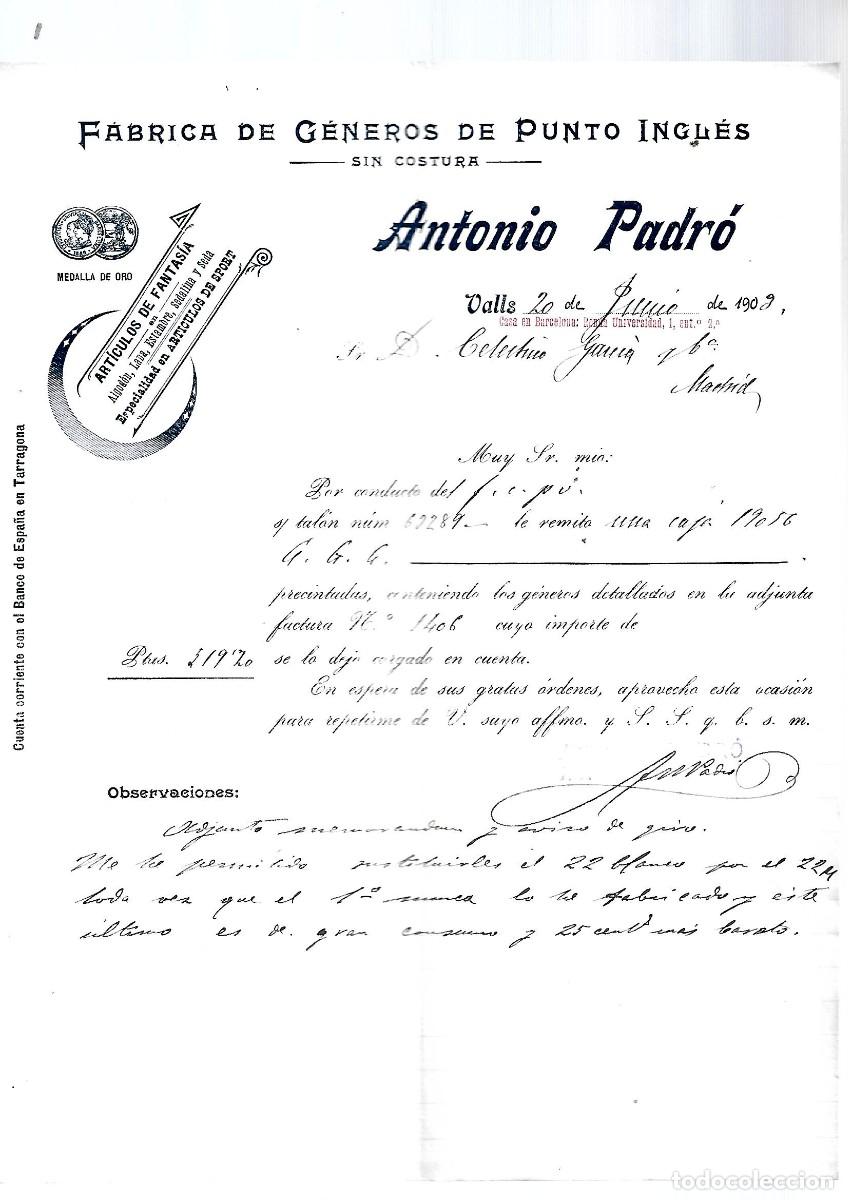 FÁBRICA DE GÉNEROS DE PUNTO INGLÉS
SIN COSTURA
MEDALLA DE ORO
ARTÍCULOS DE FANTASÍA
en
Algodón, Lana, Estambre, sedalina y seda
Especialidad en ARTÍCULOS DE SPORT
Antonio Padró
Valls 20 de Junio de 1909.
Casa en Barcelona: Ronda Universidad, 1, ent.º 2.ª
Sr. D. Celestino García y Cª
Madrid
Muy Sr. mio:
Por conducto del f. c. pv.
y talón núm 69289 le remito una caja 19056
G. G. C.
precintadas, conteniendo los géneros detallados en la adjunta
factura N.º 1406 cuyo importe de
Ptas. 519'20 se lo dejo cargado en cuenta.
En espera de sus gratas órdenes, aprovecho esta ocasión
para repetirme de V. suyo affmo. y S. S. q. b. s. m.
Ant Padró
Observaciones:
Adjunto memorandum y aviso de giro.
Me he permitido sustituirles el 22 blanco por el 22 M
toda vez que el 1º nunca lo he fabricado y este
último es de gran consumo y 25 cent más barato.
Cuenta corriente con el Banco de España en Tarragona
todocoleccion